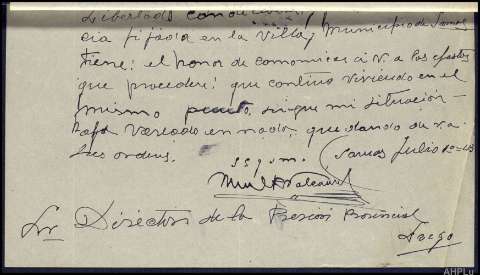 Libertad condicional,
cia fijada en la villa y municipio de Samos
tiene: el honor de comunicar á v. a los efectos
que procedeni: que continuo viviendo en el
mismo sin que mi situación
haya variado en nada, quedando de v. a
sus ordenes.
Samos Julio
Sr Director de la Prisión Provincial
Lugo
AHPLu